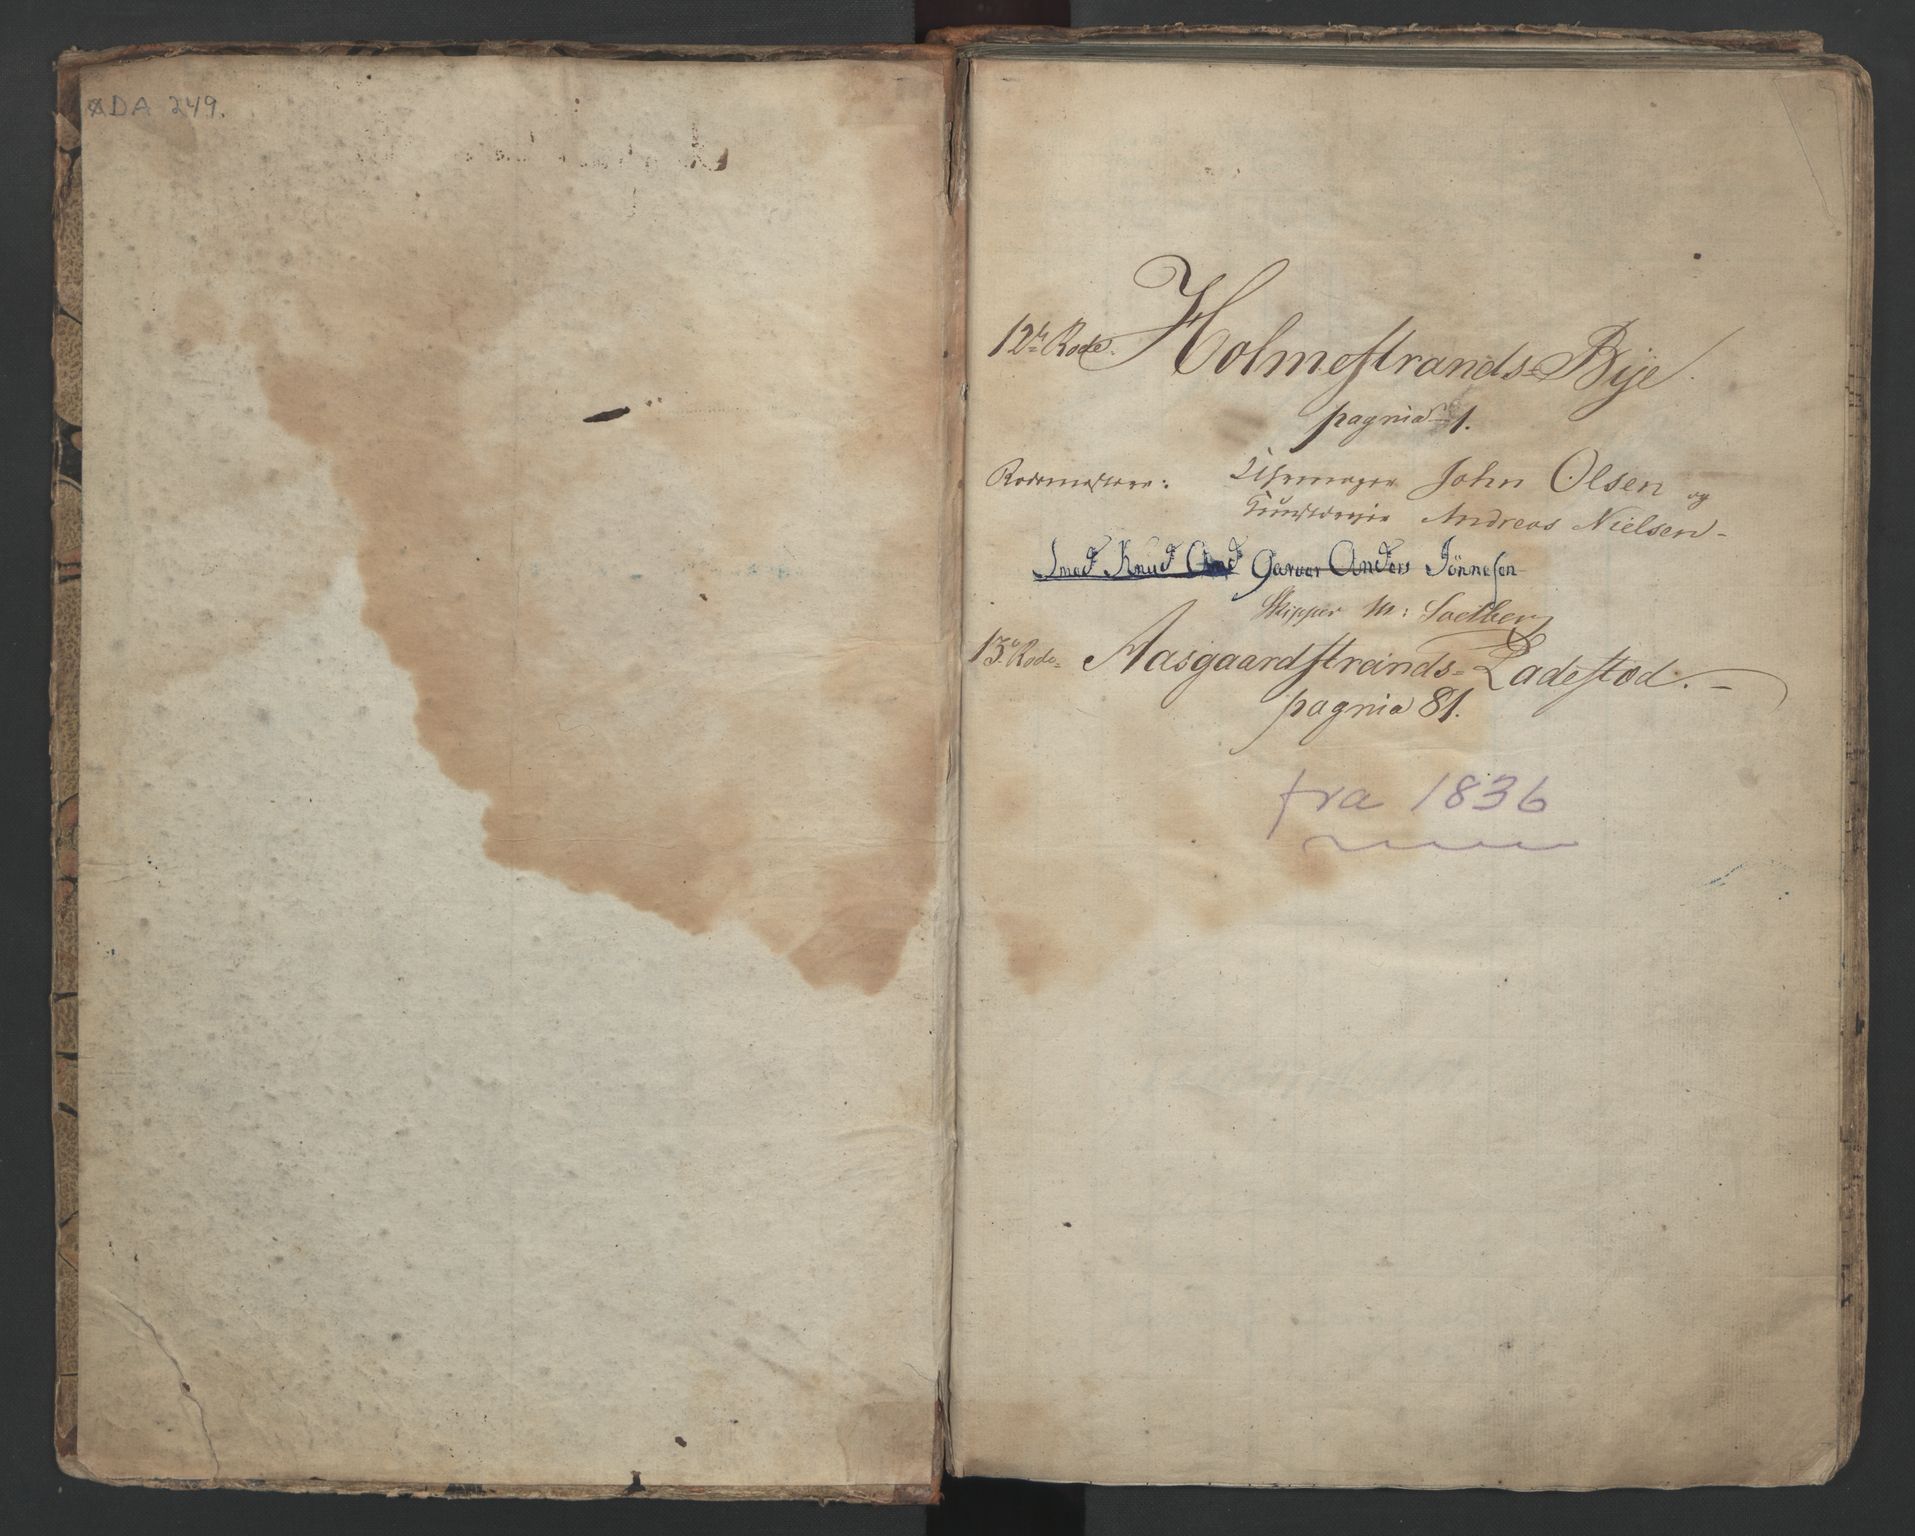 ØDA 249.
12te Rode. Holmestrands-Bye.
pagnia 1.
Rodemestere: Uhrmager John Olsen og
Andreas Nielsen-
Smed Knud And Garver Anders Jönnesen
Skipper M: Saelberg
13. Rode- Aasgaardstrands-Ladestæd.-
pagnia 81.
fra 1836